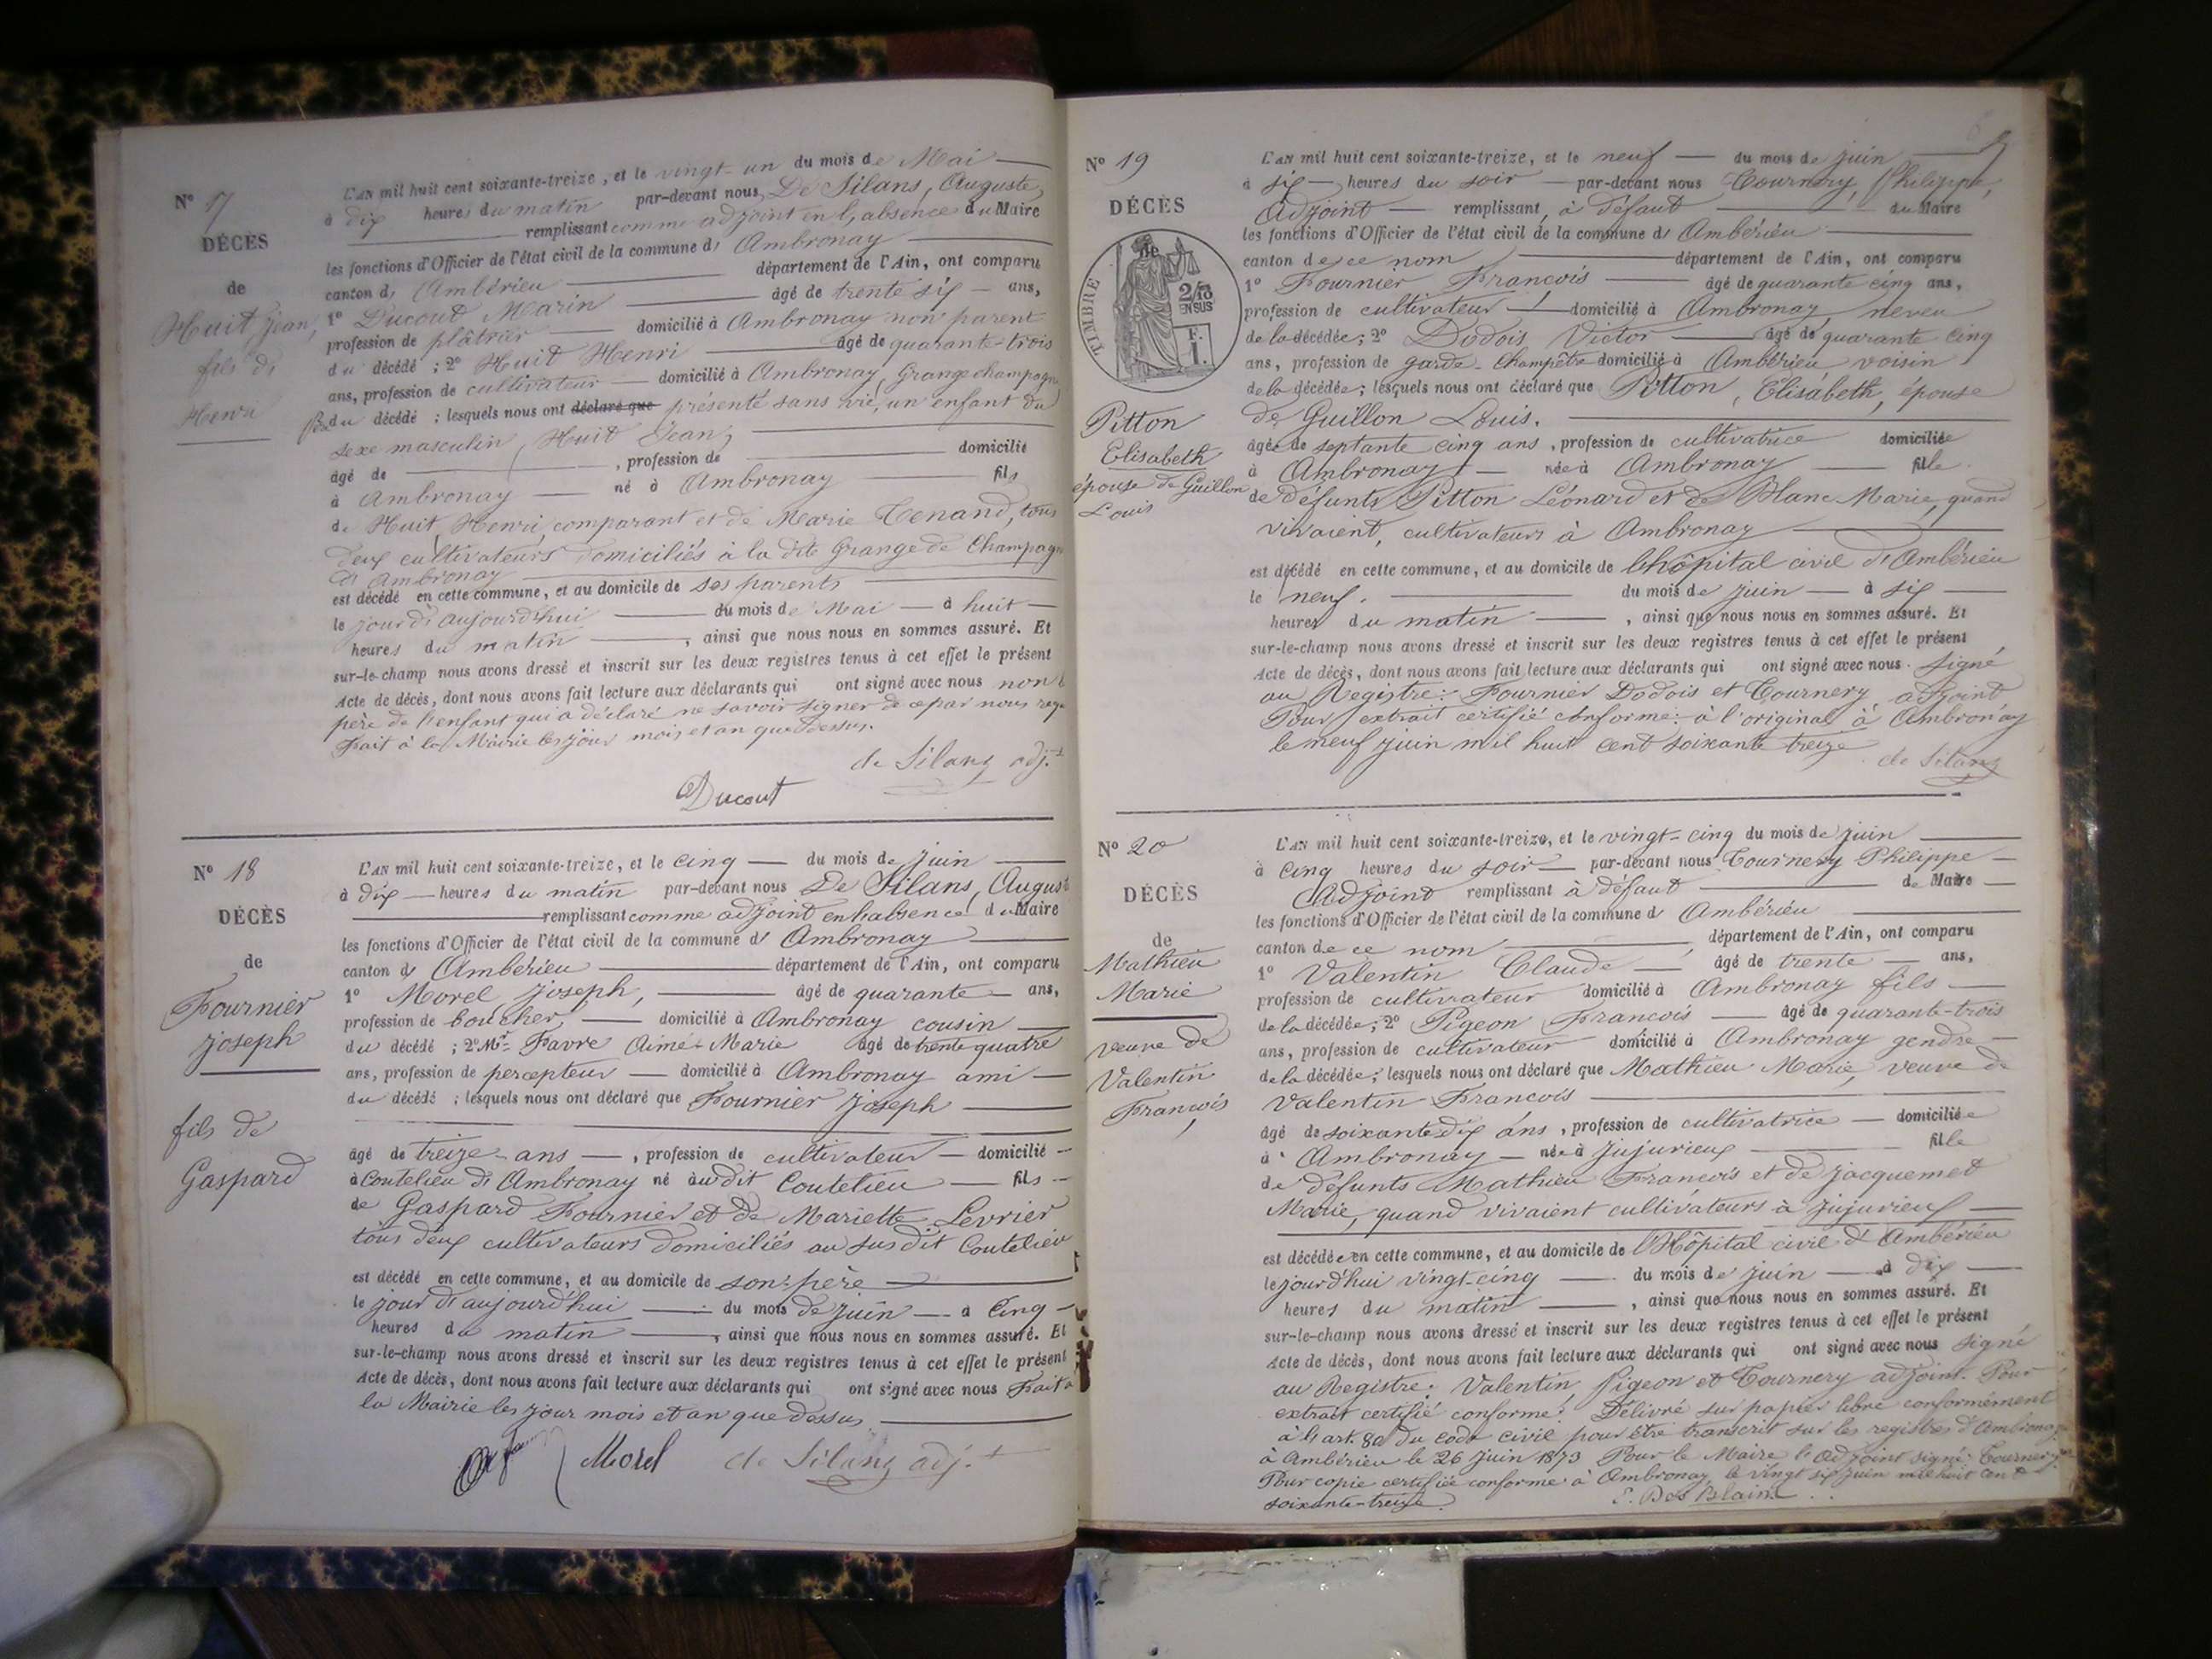 N° 17
DÉCÈS
de
Huit, Jean,
fils de
Henri
L'AN mil huit cent soixante-treize, et le vingt-un du mois de Mai
à dix heures du matin par-devant nous, De Silans, Auguste,
remplissant comme adjoint en l'absence du Maire
les fonctions d'Officier de l'état civil de la commune d' Ambronay
canton d' Ambérieu département de l'Ain, ont comparu
1° Ducout Marin âgé de trente six ans,
profession de plâtrier domicilié à Ambronay non parent
du décédé ; 2° Huit Henri âgé de quarante-trois
ans, profession de cultivateur domicilié à Ambronay, Grange champagne
du décédé ; lesquels nous ont déclaré que présenté sans vie, un enfant du
sexe masculin, Huit Jean,
âgé de , profession de domicilié
à Ambronay né à Ambronay fils
de Huit, Henri, comparant et de Marie Tenand, tous
deux cultivateurs domiciliés à la dite Grange de Champagne
d'Ambronay
est décédé en cette commune, et au domicile de ses parents
le jour d'aujourd'hui du mois de Mai à huit
heures du matin , ainsi que nous nous en sommes assuré. Et
sur-le-champ nous avons dressé et inscrit sur les deux registres tenus à cet effet le présent
Acte de décès, dont nous avons fait lecture aux déclarants qui ont signé avec nous non le
père de l'enfant qui a déclaré ne savoir signer de ce par nous
Fait à la Mairie les jour mois et an que dessus.
de Silans adj.t
Ducout
N° 18
DÉCÈS
de
Fournier
Joseph
fils de
Gaspard
L'AN mil huit cent soixante-treize, et le cinq du mois de Juin
à dix heures du matin par-devant nous De Silans, August
remplissant comme adjoint en l'absence du Maire
les fonctions d'Officier de l'état civil de la commune d' Ambronay
canton d' Ambérieu département de l'Ain, ont comparu
1° Morel Joseph, âgé de quarante ans,
profession de boucher domicilié à Ambronay cousin
du décédé ; 2° Mr Favre Aimé-Marie âgé de trente quatre
ans, profession de percepteur domicilié à Ambronay ami
du décédé ; lesquels nous ont déclaré que Fournier Joseph
âgé de treize ans , profession de cultivateur domicilié
à Coutelieu d'Ambronay né au dit Coutelieu fils
de Gaspard Fournier et de Mariette Levrier
tous deux cultivateurs domiciliés au susdit Coutelieu
est décédé en cette commune, et au domicile de son père
le jour d'aujourd'hui du mois de Juin à cinq
heures du matin , ainsi que nous nous en sommes assuré. Et
sur-le-champ nous avons dressé et inscrit sur les deux registres tenus à cet effet le présent
Acte de décès, dont nous avons fait lecture aux déclarants qui ont signé avec nous Fait à
la Mairie les jour mois et an que dessus.
Morel de Silans adj.t
N° 19
DÉCÈS
de
TIMBRE
2/10 EN SUS
F. 1.
Pitton
Elisabeth
épouse de Guillon
Louis
L'AN mil huit cent soixante-treize, et le neuf du mois de Juin
à six heures du soir par-devant nous Tournery, Philippe,
Adjoint remplissant, à défaut du Maire
les fonctions d'Officier de l'état civil de la commune d' Ambérieu
canton de ce nom département de l'Ain, ont comparu
1° Fournier François âgé de quarante cinq ans,
profession de cultivateur domicilié à Ambronay, neveu
de la décédée ; 2° Dodois Victor âgé de quarante cinq
ans, profession de garde-champêtre domicilié à Ambérieu voisin
de la décédée ; lesquels nous ont déclaré que Pitton, Elisabeth, épouse
de Guillon Louis.
âgée de septante cinq ans, profession de cultivatrice domiciliée
à Ambronay née à Ambronay fille
de défunts Pitton Léonard et de Blanc Marie, quand
vivaient, cultivateurs à Ambronay
est décédé en cette commune, et au domicile de l'hôpital civil d'Ambérieu
le neuf. du mois de Juin à six
heures du matin , ainsi que nous nous en sommes assuré. Et
sur-le-champ nous avons dressé et inscrit sur les deux registres tenus à cet effet le présent
Acte de décès, dont nous avons fait lecture aux déclarants qui ont signé avec nous. Signé
au Registre: Fournier Dodois et Tournery adjoint
Pour extrait certifié conforme à l'original à Ambronay
le neuf juin mil huit cent soixante treize
de Silans
N° 20
DÉCÈS
de
Mathieu
Marie
veuve de
Valentin
François
L'AN mil huit cent soixante-treize, et le vingt-cinq du mois de Juin
à cinq heures du soir par-devant nous Tournery Philippe
Adjoint remplissant à défaut de Maire
les fonctions d'Officier de l'état civil de la commune d' Ambérieu
canton de ce nom département de l'Ain, ont comparu
1° Valentin Claude âgé de trente ans,
profession de cultivateur domicilié à Ambronay fils
de la décédée ; 2° Pigeon François âgé de quarante-trois
ans, profession de cultivateur domicilié à Ambronay gendre
de la décédée ; lesquels nous ont déclaré que Mathieu Marie, veuve de
Valentin François
âgé de soixante dix ans, profession de cultivatrice domiciliée
à Ambronay née à Jujurieux fille
de défunts Mathieu François et de Jacquemet
Marie, quand vivaient cultivateurs à Jujurieux
est décédée en cette commune, et au domicile de l'Hôpital civil d'Ambérieu
le jourd'hui vingt-cinq du mois de Juin à dix
heures du matin , ainsi que nous nous en sommes assuré. Et
sur-le-champ nous avons dressé et inscrit sur les deux registres tenus à cet effet le présent
Acte de décès, dont nous avons fait lecture aux déclarants qui ont signé avec nous Signé
au Registre: Valentin, Pigeon et Tournery adjoint. Pour
extrait certifié conforme: Délivré sur papier libre conformément
à l'art. 80 du code civil pour être transcrit sur les registres d'Ambronay
à Ambérieu le 26 Juin 1873 Pour le Maire l'adjoint signé: Tournery
Pour copie certifiée conforme à Ambronay, le vingt six Juin mil huit cent
soixante-treize.